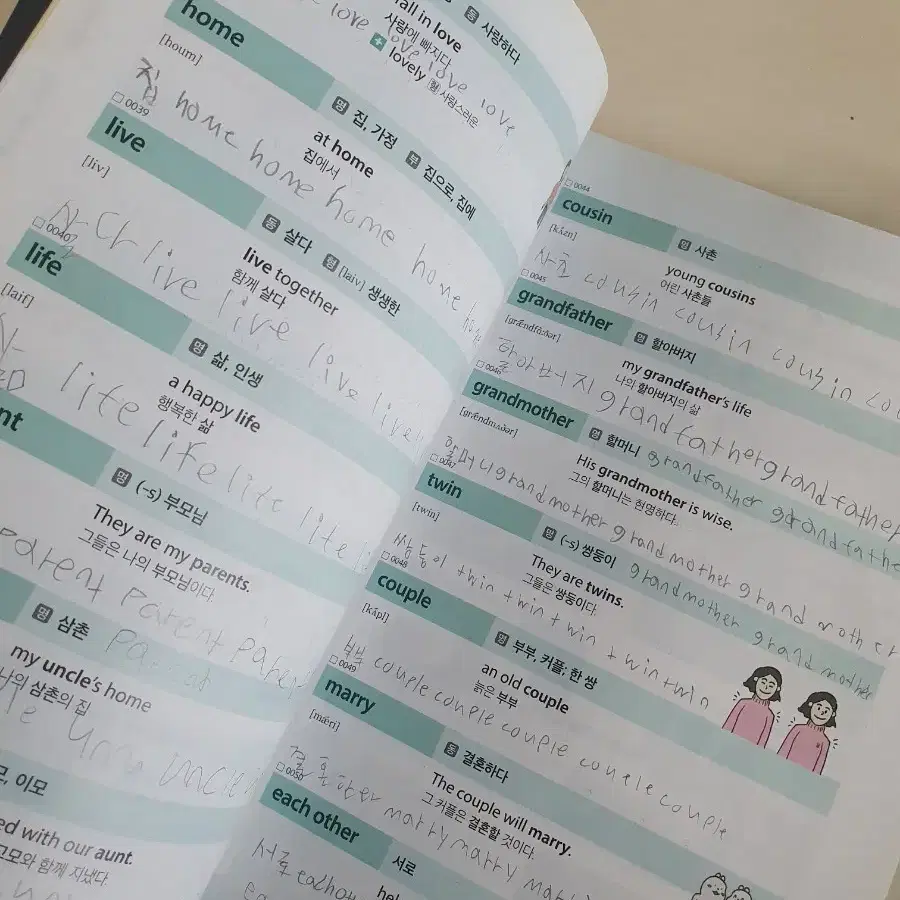 동 사랑하다
fall in love
사랑에 빠지다
love love love love
+ lovely 형 사랑스러운
home
[houm]
명 집, 가정 부 집으로, 집에
at home
집에서
집 home home home home
0039
live
[liv]
동 살다 형 [laiv] 생생한
live together
함께 살다
살다 live live live live
0040
life
[laif]
명 삶, 인생
a happy life
행복한 삶
life life life life
명 (-s) 부모님
They are my parents.
그들은 나의 부모님이다.
parent parent parent
명 삼촌
my uncle's home
나의 삼촌의 집
uncle
이모
with our aunt.
고모와 함께 지냈다.
0044
cousin
명 사촌
young cousins
어린 사촌들
사촌 cousin cousin cousin
0045
grandfather
명 할아버지
my grandfather's life
나의 할아버지의 삶
할아버지 grandfather grandfather
0046
grandmother
명 할머니 grandfather grandfather
His grandmother is wise.
그의 할머니는 현명하다.
할머니 grandmother grandmother grandmother
0047
twin
[twin]
명 (-s) 쌍둥이 grandmother grandmother
They are twins.
그들은 쌍둥이다.
쌍둥이 twin twin twin twin twin
0048
couple
명 부부, 커플; 한 쌍
an old couple
늙은 부부
부부 couple couple couple couple couple
0049
marry
동 결혼하다
The couple will marry.
그 커플은 결혼할 것이다.
marry marry
0050
each other
서로
서로